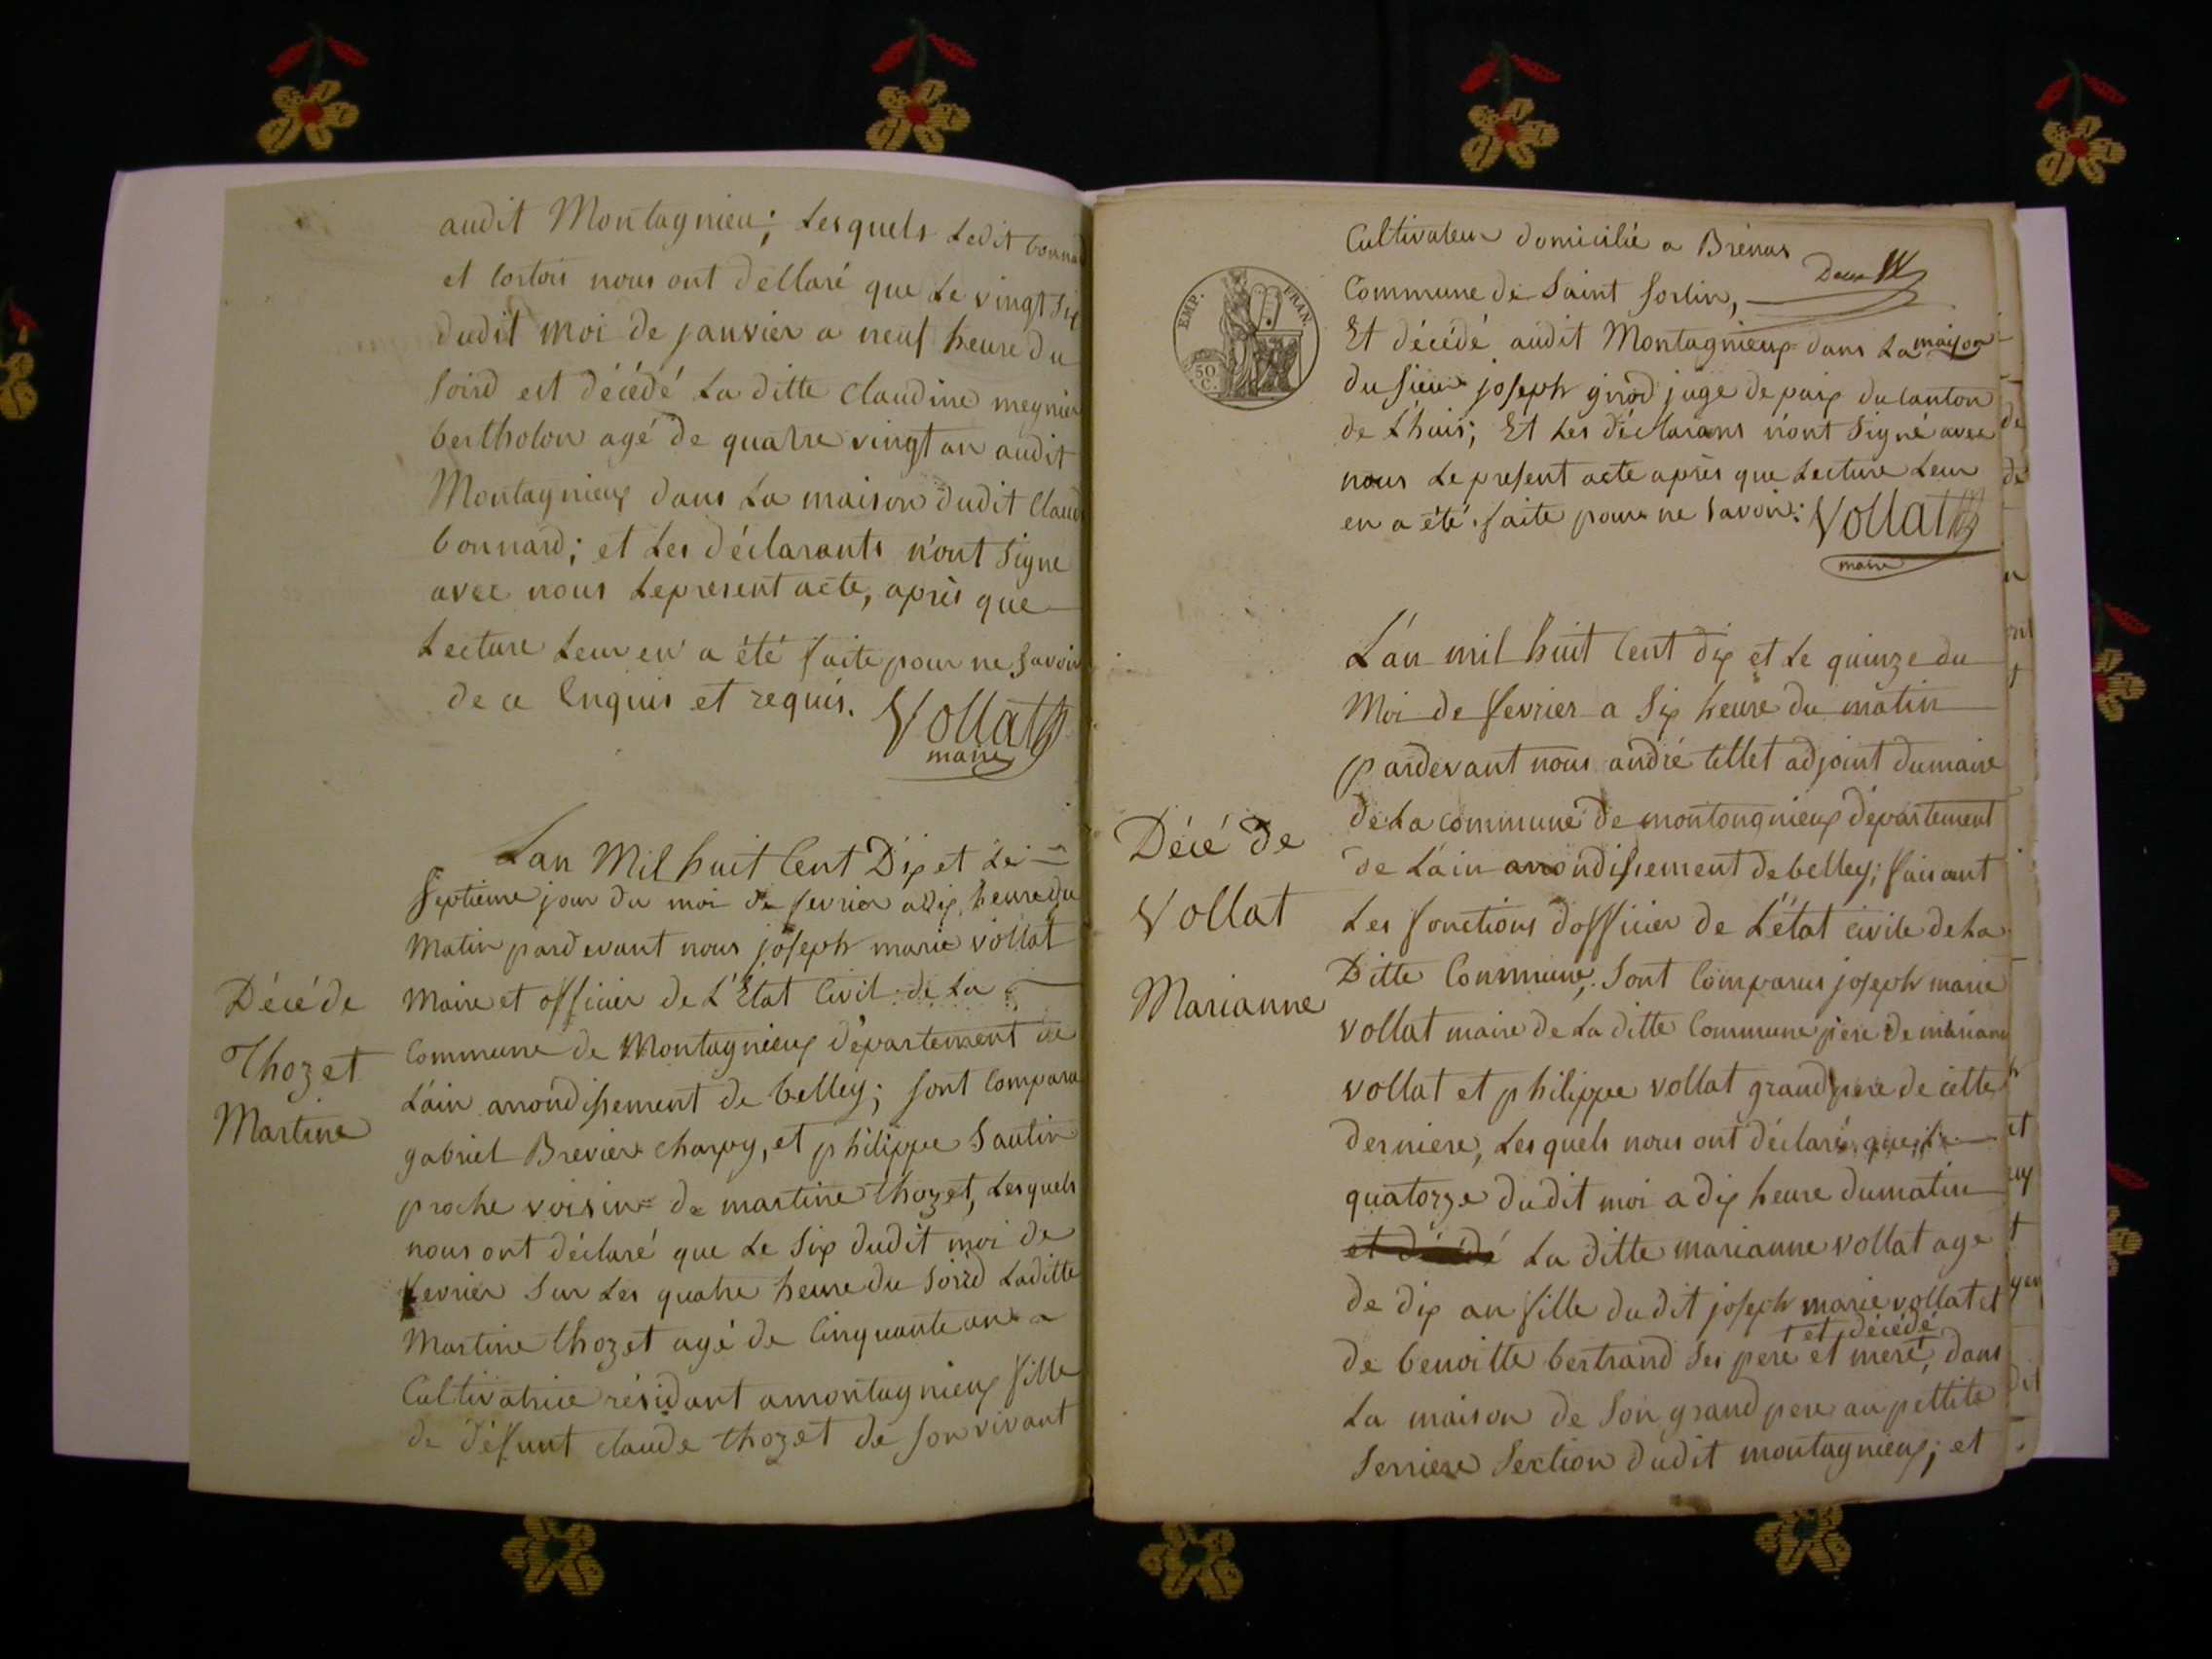 audit Montagnieu; Les quels Ledit bonnard
et Cortois nous ont dellaré que Le vingt Six
dudit moi de janvier a neuf heure du
Soird est décédé La ditte Claudine meynier
bertholon agé de quatre vingt an audit
Montagnieux dans La maison dudit Claude
bonnard; et Les déclarants n'ont Signe
avec nous Lepresent acte, après que
Lecture Leur en a été faite pour ne Savoir
de ce Enquis et requis. Vollat
maire
Lan Mil huit Cent Dix et Le
Septieme jour du moi de fevrier a dix heure du
Matin pardevant nous joseph marie vollat
Maire et officier de L'Etat Civil de La
Décé de
Thozet
Martine
Commune de Montagnieux département de
L'ain arrondissement de belley; sont Comparu
gabriel Brevier charpy, et philippe Sautin
proche voisin de martine thozet, Lesquels
nous ont déclaré que Le Six dudit moi de
fevrier Sur Les quatre heure du Soird Laditte
Martine thozet agé de Cinquante ans
Cultivatrice résidant amontagnieux fille
de défunt claude thozet de son vivant
EMP. FRAN.
50 C.
Cultivateur domicilié a Brénas
Commune de Saint Sorlin,
Et décédé audit Montagnieux dans La maison
du sieur joseph girod juge de paix du Canton
de L'huis; Et Les déclarans n'ont Signé avec
nous Le present acte après que Lecture Leur
en a été faite pour ne Savoir: Vollat
maire
Décé de
Vollat
Marianne
L'an mil huit Cent dix et Le quinze du
Moi de fevrier a Six heure du matin
pardevant nous andré tillet adjoint dumaire
de La commune de montongnieux département
de L'ain arrondissement de belley; faisant
Les fonctions d'officier de L'état civile de La
Ditte Commune; Sont Comparus joseph marie
vollat maire de La ditte Commune pere de marianne
vollat et philippe vollat grand pere de cette
derniere, Les quels nous ont déclaré que Le
quatorze dudit moi a dix heure dumatin
et décédé La ditte marianne vollat age
de dix an fille dudit joseph marie vollat et
et décédé
de benoitte bertrand Ses pere et mere, dans
La maison de Son grand pere au pettite
Serriere Section dudit montagnieux; et